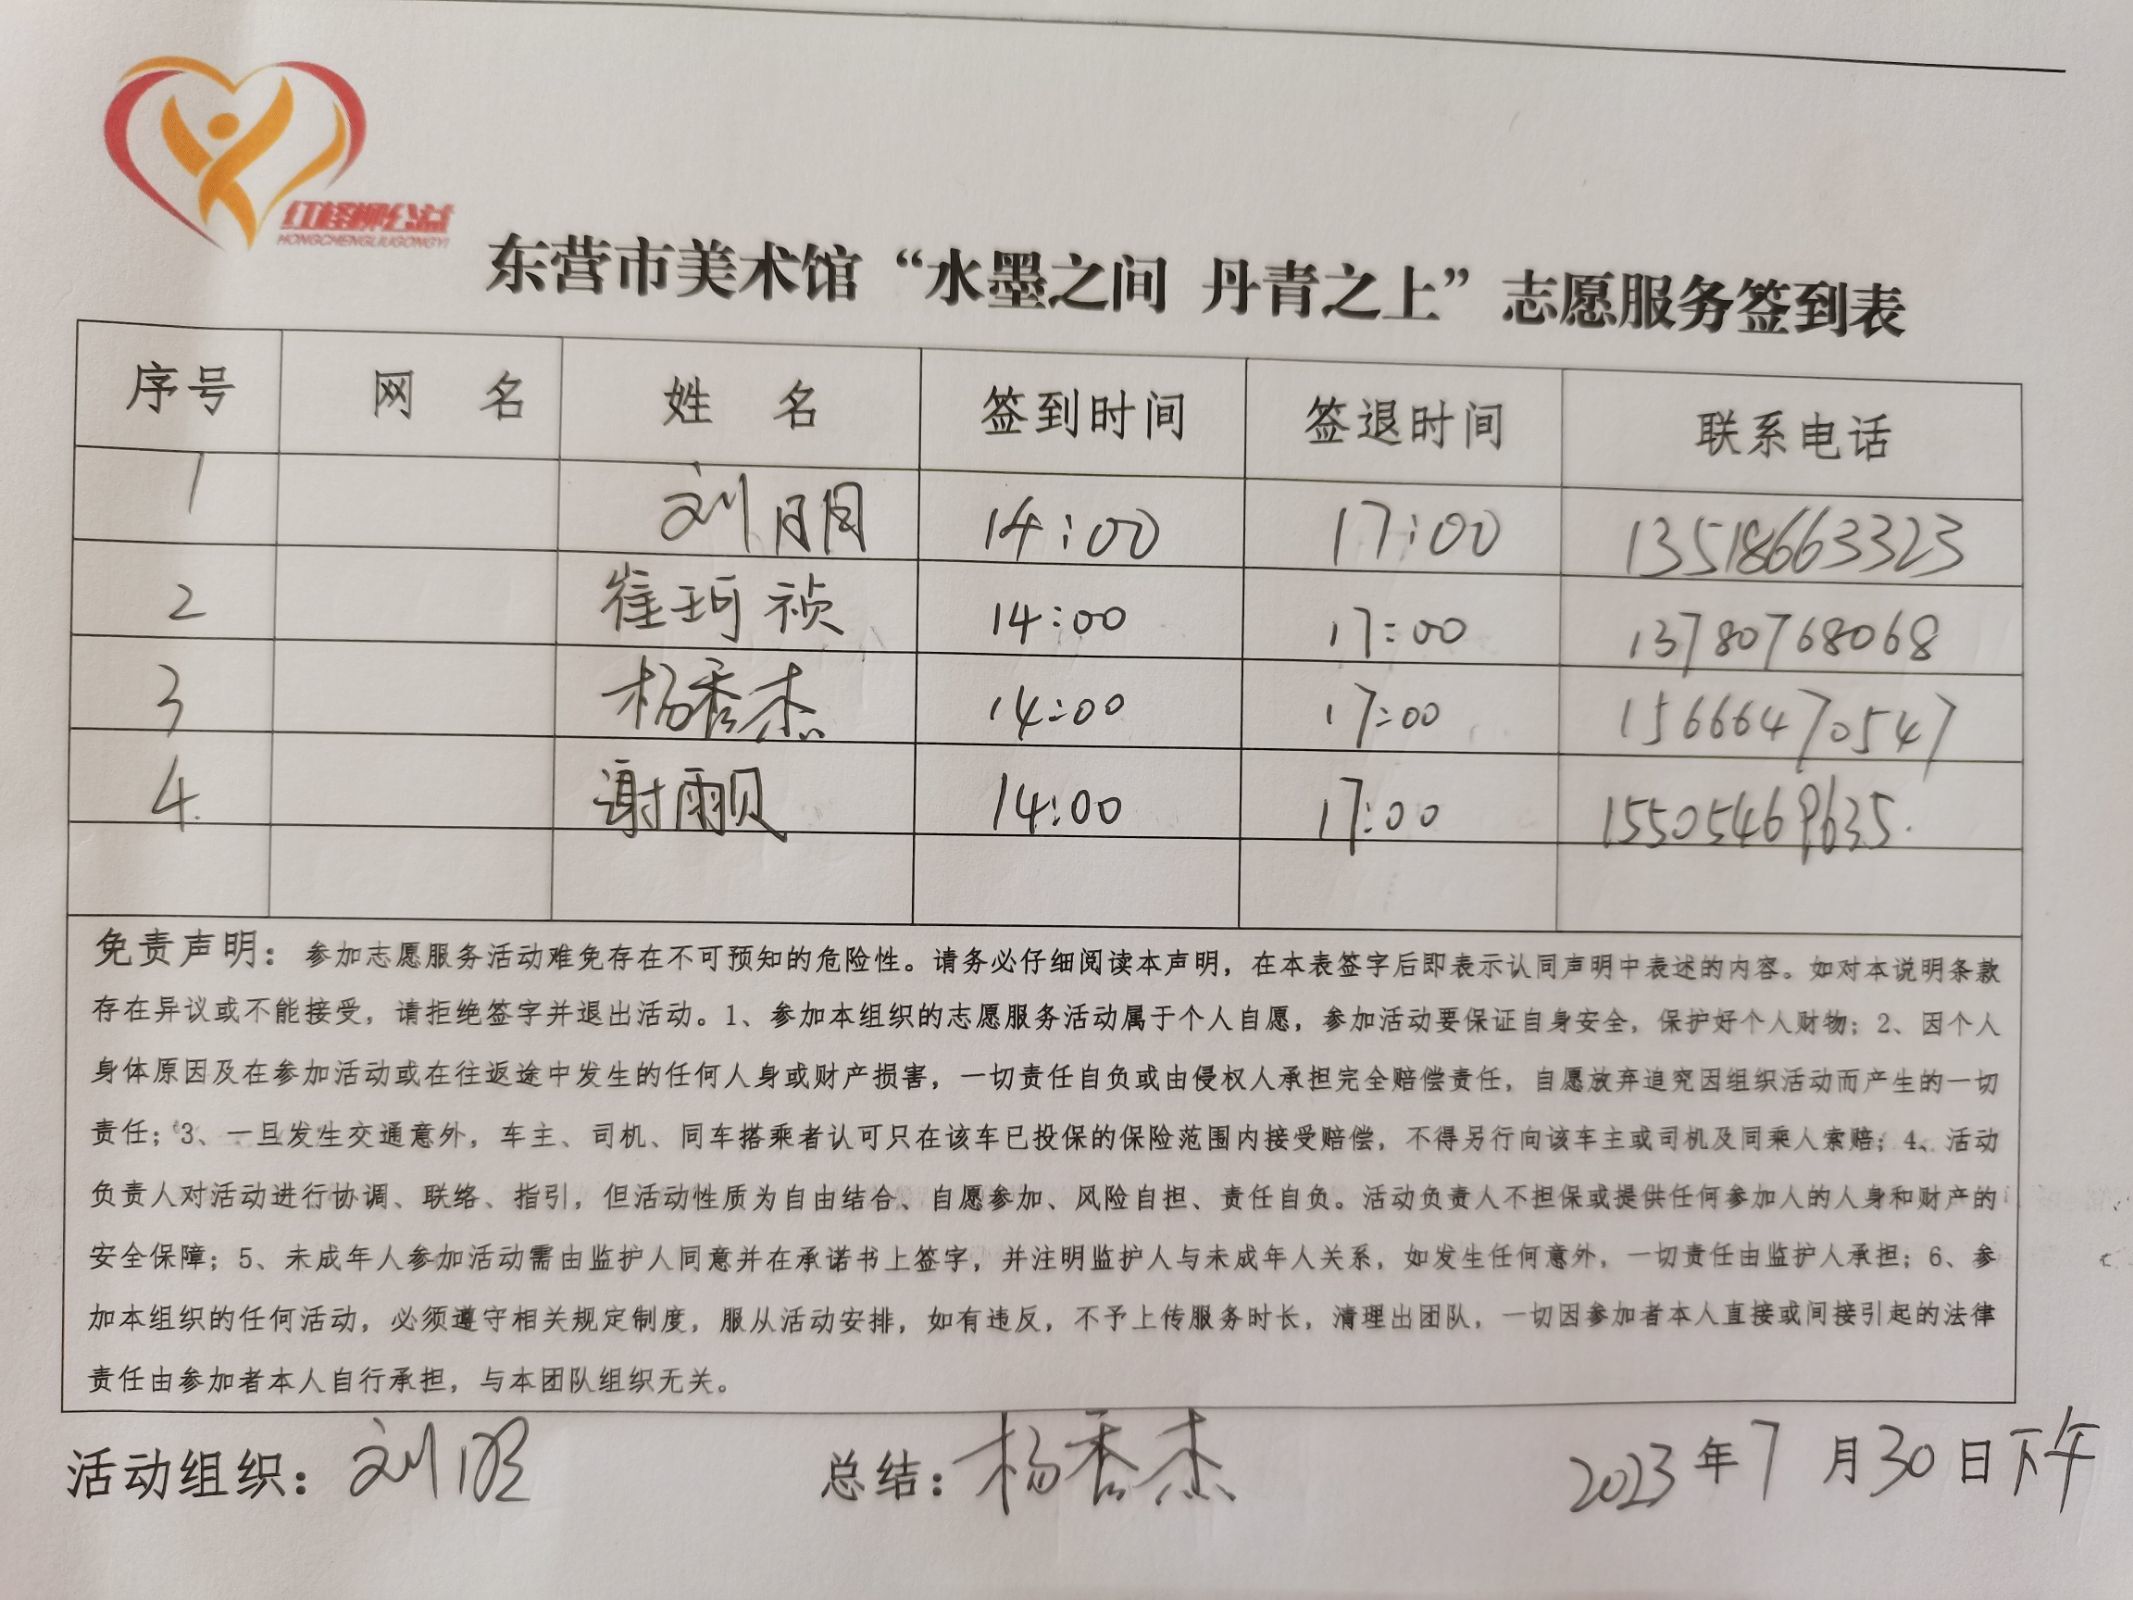 红柽柳公益
HONGCHENGLIUGONGYI
东营市美术馆“水墨之间 丹青之上”志愿服务签到表
序号 网 名 姓 名 签到时间 签退时间 联系电话
1 刘明 14:00 17:00 13518663323
2 崔珂祯 14:00 17:00 13780768068
3 杨秀杰 14:00 17:00 15666470547
4. 谢雨贝 14:00 17:00 15505469635.
免责声明：参加志愿服务活动难免存在不可预知的危险性。请务必仔细阅读本声明，在本表签字后即表示认同声明中表述的内容。如对本说明条款
存在异议或不能接受，请拒绝签字并退出活动。1、参加本组织的志愿服务活动属于个人自愿，参加活动要保证自身安全，保护好个人财物；2、因个人
身体原因及在参加活动或在往返途中发生的任何人身或财产损害，一切责任自负或由侵权人承担完全赔偿责任，自愿放弃追究因组织活动而产生的一切
责任；3、一旦发生交通意外，车主、司机、同车搭乘者认可只在该车已投保的保险范围内接受赔偿，不得另行向该车主或司机及同乘人索赔；4、活动
负责人对活动进行协调、联络、指引，但活动性质为自由结合、自愿参加、风险自担、责任自负。活动负责人不担保或提供任何参加人的人身和财产的
安全保障；5、未成年人参加活动需由监护人同意并在承诺书上签字，并注明监护人与未成年人关系，如发生任何意外，一切责任由监护人承担；6、参
加本组织的任何活动，必须遵守相关规定制度，服从活动安排，如有违反，不予上传服务时长，清理出团队，一切因参加者本人直接或间接引起的法律
责任由参加者本人自行承担，与本团队组织无关。
活动组织：刘明 总结：杨秀杰 2023年7月30日下午